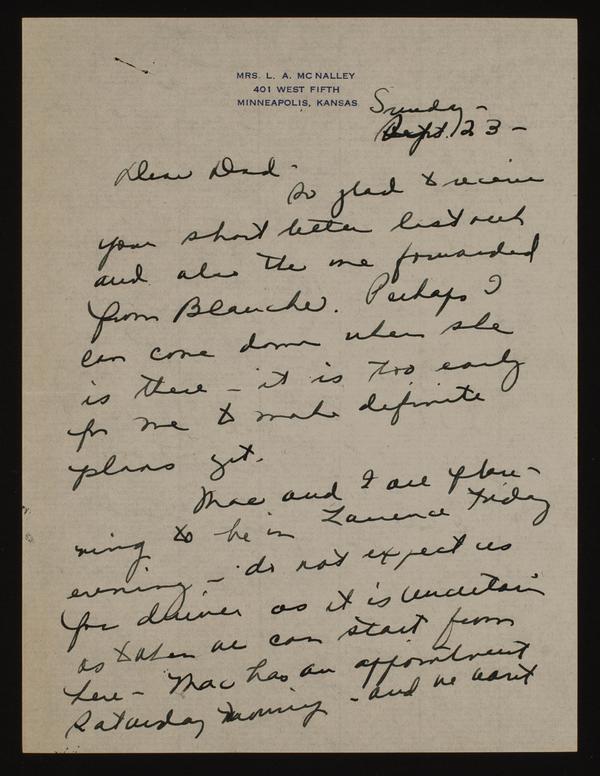 MRS. L. A. MCNALLEY
401 WEST FIFTH
MINNEAPOLIS, KANSAS
Sunday -
Sept. 23 -
Dear Dad -
So glad to receive
your short letter last week
and also the one forwarded
from Blanche. Perhaps I
can come down when she
is there - it is too early
for me to make definite
plans yet.
Mac and I are plan-
ning to be in Lawrence Friday
evening - do not expect us
for dinner as it is uncertain
as to when we can start from
here - Mac has an appointment
Saturday morning - and we want